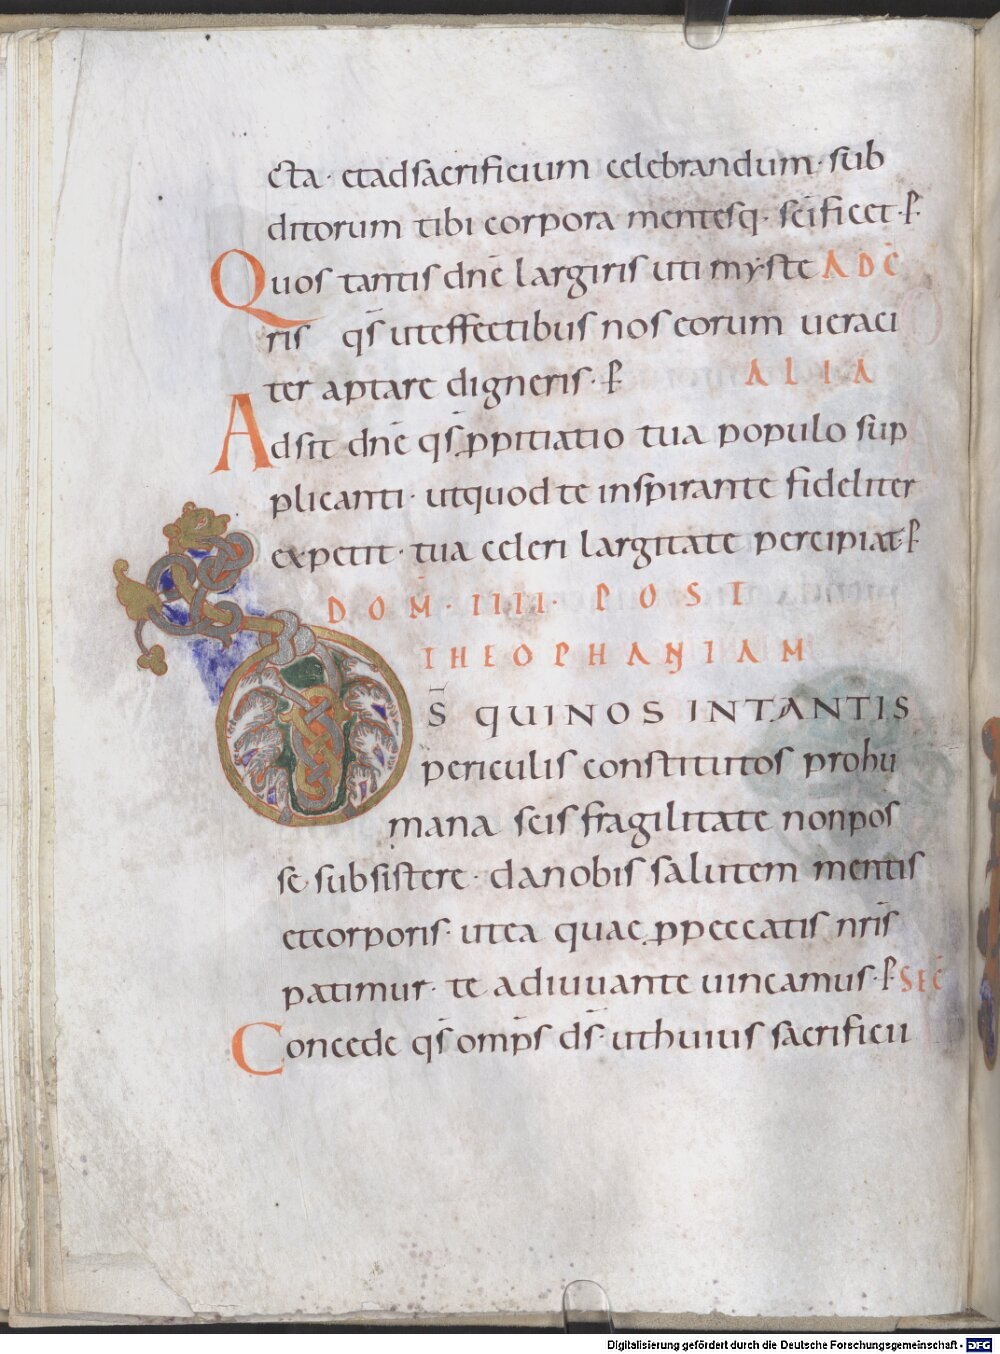 cta · et ad sacrificium celebrandum · sub
ditorum tibi corpora mentesq · scīficet · P̵
Quos tantis dn̄e largiris uti myste AD CŌ
ris qs̄ ut effectibus nos eorum ueraci
ter aptare digneris · P̵ ALIA
Adsit dn̄e qs̄ ꝓpitiatio tua populo sup
plicanti · ut quod te inspirante fideliter
expetit · tua celeri largitate percipiat · P̵
DOM̄ · IIII · POST
THEOPHANIAM
D S̄ QUI NOS IN TANTIS
periculis constitutos pro hu
mana scis fragilitate non pos
se subsistere · da nobis salutem mentis
et corporis · ut ea quae ꝓ peccatis nr̄is
patimur · te adiuuante uincamus · P̵ SEC̄
Concede qs̄ omp̄s ds̄ · ut huius sacrificii
Digitalisierung gefördert durch die Deutsche Forschungsgemeinschaft - DFG